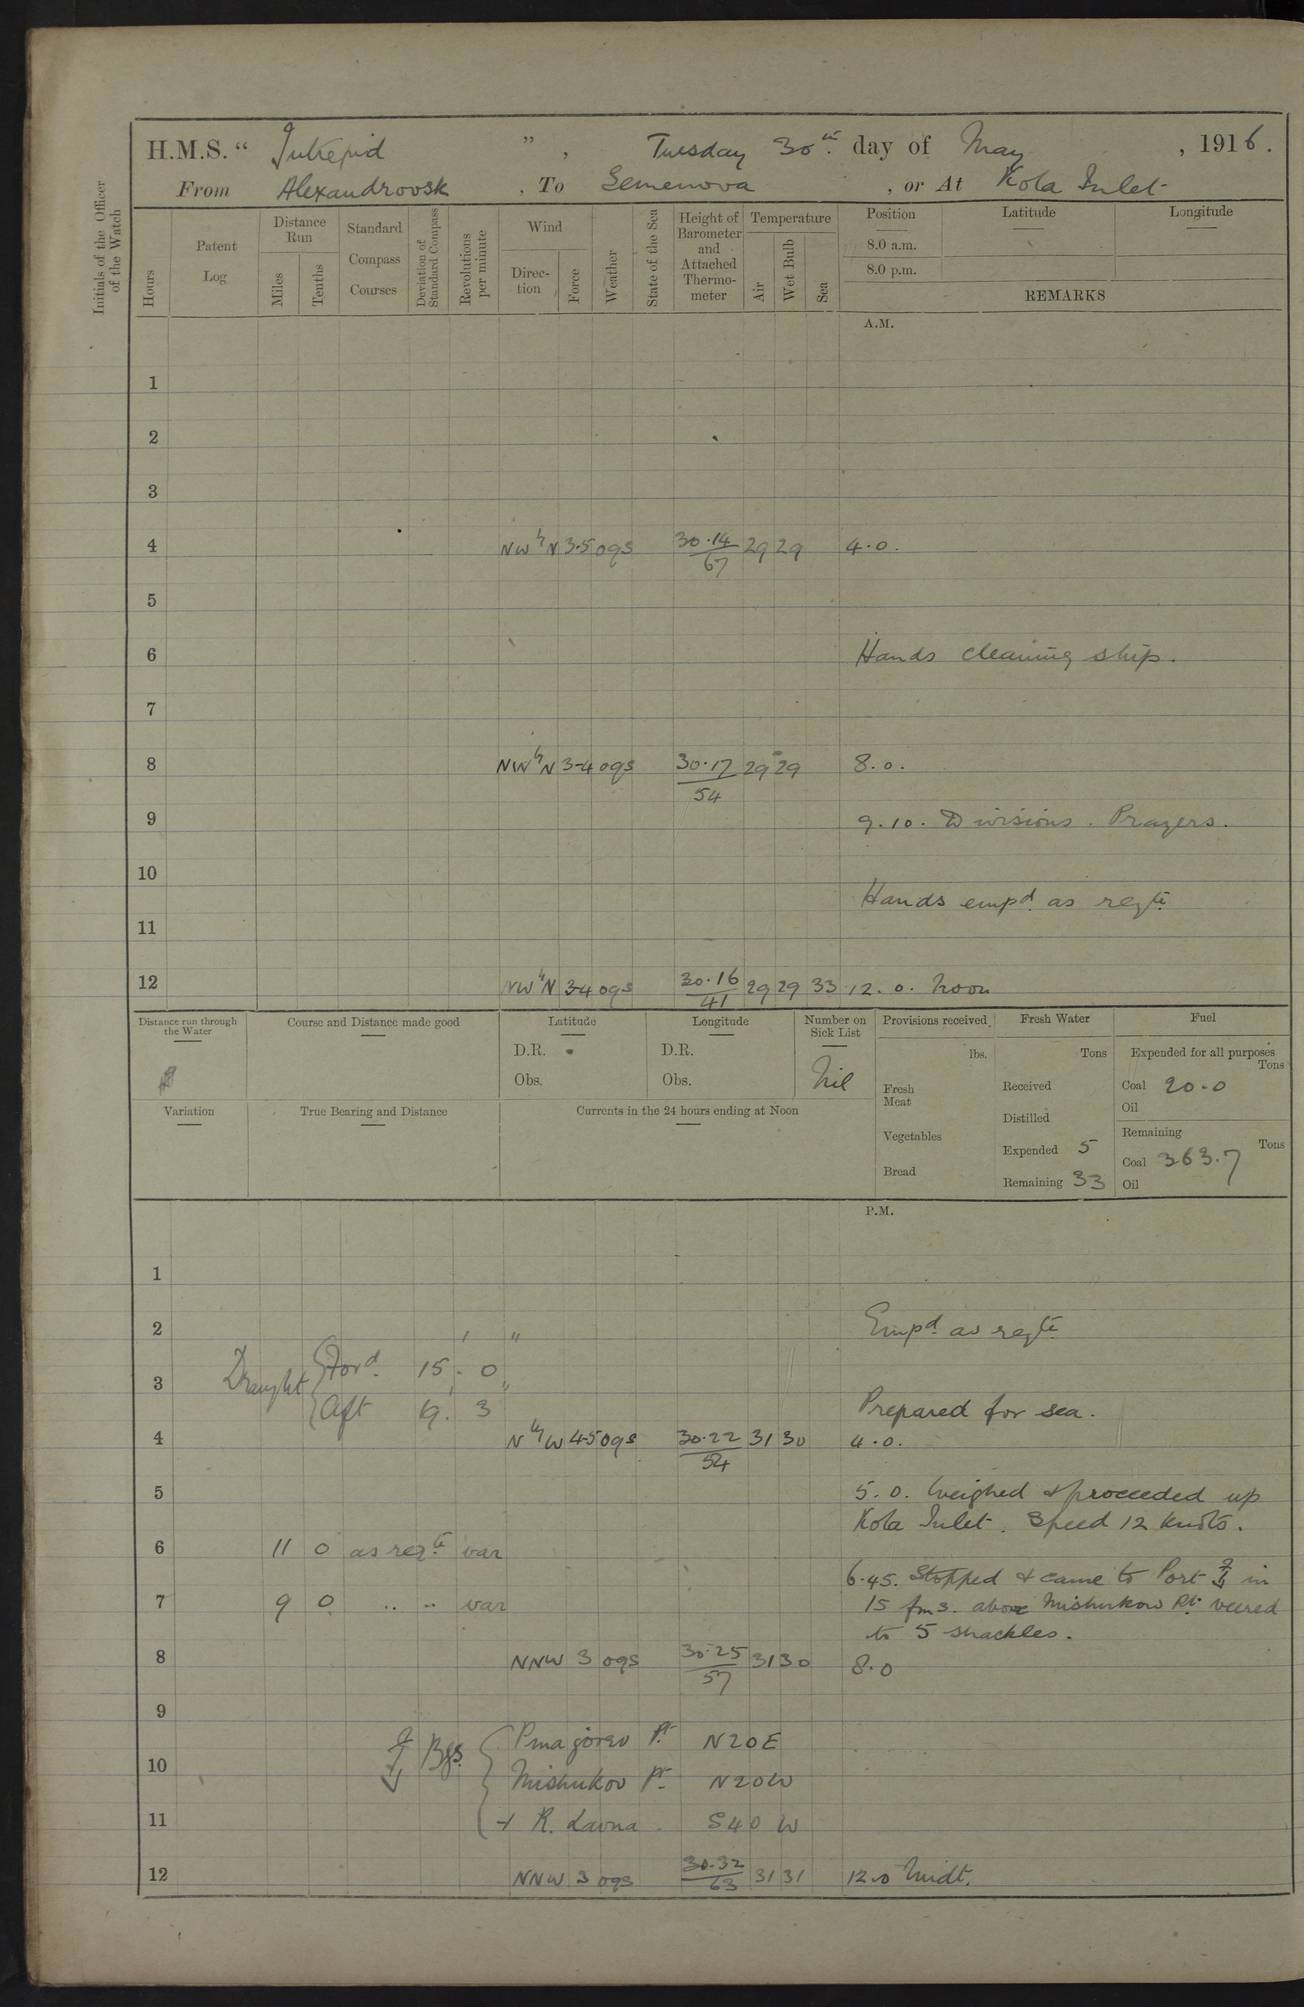 H.M.S. "Intrepid", Tuesday 30th day of May, 1916.
From Alexandrovsk, To Semenova, or At Kola Inlet
Initials of the Officer of the Watch
Hours
Patent Log
Distance Run
Miles
Tenths
Standard Compass Courses
Deviation of Standard Compass
Revolutions per minute
Wind
Direction
Force
Weather
State of the Sea
Height of Barometer and Attached Thermometer
Temperature
Air
Wet Bulb
Sea
Position
8.0 a.m.
8.0 p.m.
Latitude
Longitude
REMARKS
A.M.
1
2
3
4 NW by N 3-5 ogs 30.14 67 29 29 4.0.
5
6 Hands cleaning ship.
7
8 NW by N 3-4 ogs 30.17 54 29 29 8.0.
9 9.10. Divisions. Prayers.
10
Hands empd. as reqte.
11
12 NW by N 3-4 ogs 30.16 41 29 29 33 12.0. Noon
Distance run through the Water
Course and Distance made good
Latitude
D.R.
Obs.
Longitude
D.R.
Obs.
Number on Sick List
Nil
Provisions received
lbs.
Fresh Meat
Vegetables
Bread
Fresh Water
Tons
Received
Distilled
Expended 5
Remaining 33
Fuel
Expended for all purposes
Tons
Coal 20.0
Oil
Remaining
Tons
Coal 363.7
Oil
Variation
True Bearing and Distance
Currents in the 24 hours ending at Noon
P.M.
1
2 Empd. as reqte.
Draught { Ford. 15' . 0"
3
Aft 19' . 3"
Prepared for sea.
4 N by W 4-5 ogs 30.22 54 31 30 4.0.
5 5.0. Weighed & proceeded up
Kola Inlet. Speed 12 knots.
6 11 0 as reqte var
6.45. Stopped & came to Port in
7 9 0 .. .. var 15 fms. above Mishukow Pt. veered
to 5 shackles.
8 NNW 3 ogs 30.25 57 31 30 8.0
9
Bgs. { Pinagoriev Pt. N20E
10 Mishukov Pt. N20W
11 + R. Lavna. S40W
12 NNW 3 ogs 30.32 63 31 31 12.0 Midt.